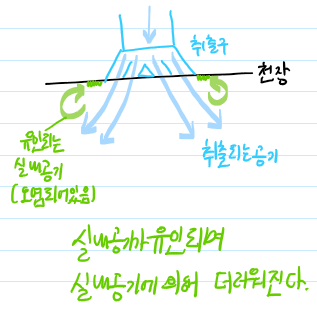 취출구
천장
유인되는
실내공기
(오염되어있음)
취출되는공기
실내공기가유인되며
실내공기에 의해 더러워진다.